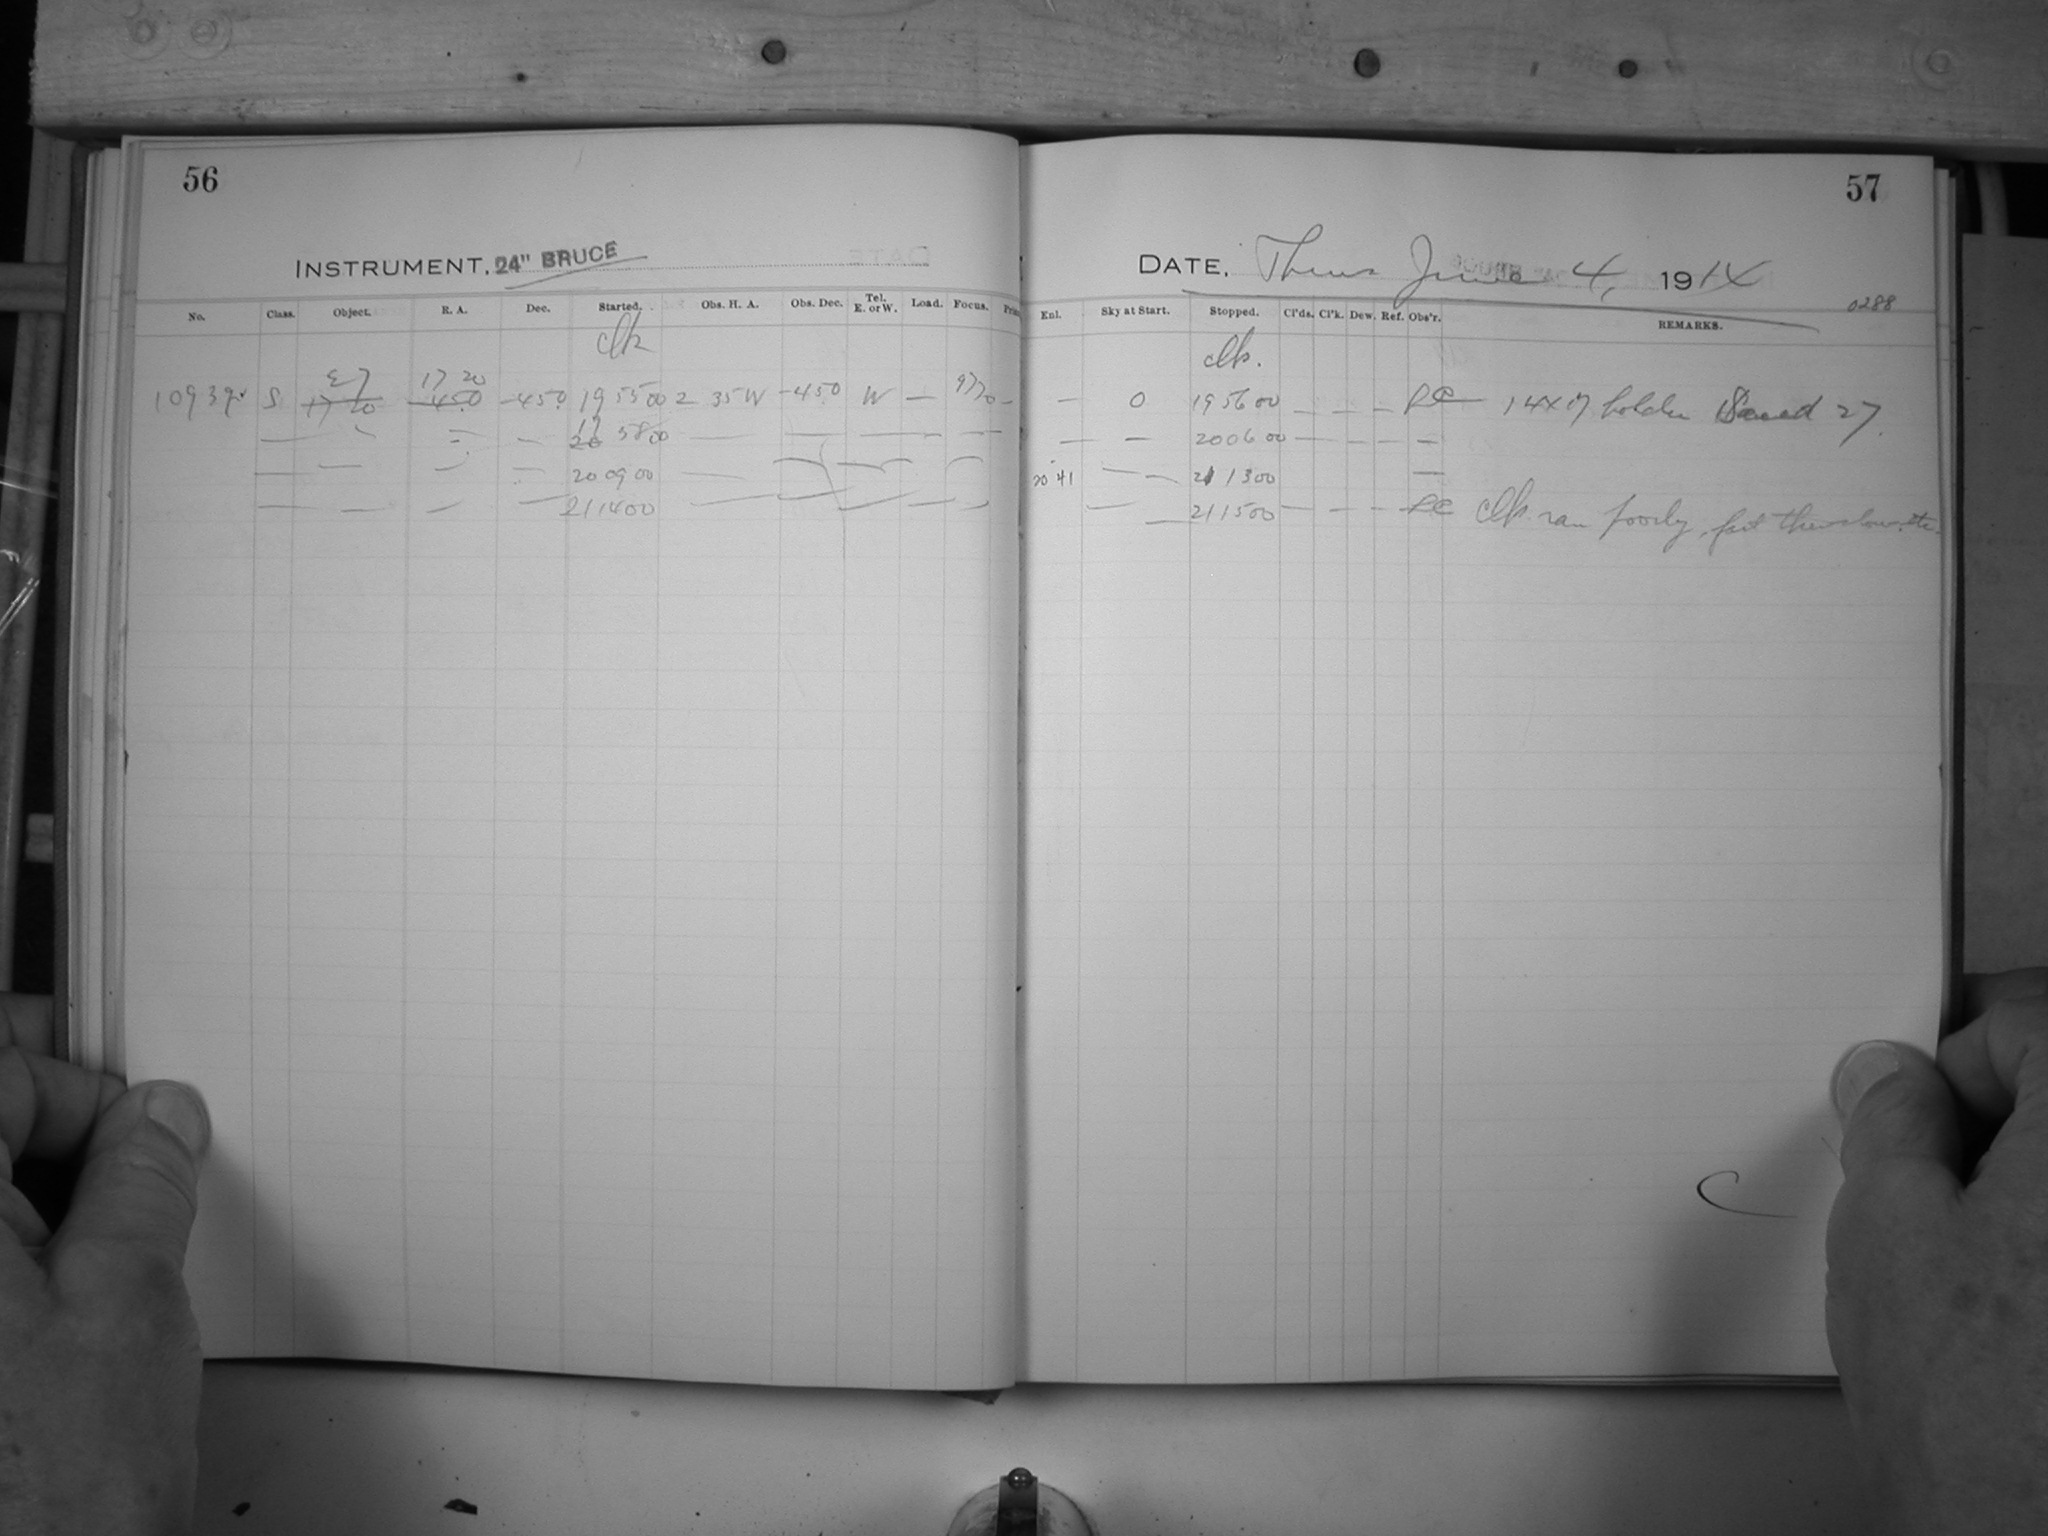 56
INSTRUMENT, 24" BRUCE
No. Class. Object. R. A. Dec. Started. Obs. H. A. Obs. Dec. Tel. E. or W. Load. Focus.
clk
E7 17 20
10939 S 17 20 450 -450 19 55 00 2 35 W -450 W — 9770 —
— — — 20 19 58 00 — — — —
— — — — 20 09 00 — — — —
— — — — 21 14 00 — — — — —
57
DATE, Thurs June 4, 1914
0288
Enl. Sky at Start. Stopped. Cl'ds. Cl'k. Dew. Ref. Obs'r. REMARKS.
clk.
— 0 19 56 00 — — — 14x17 holder 27.
— — 20 06 00 — — — — —
20 41 — — 21 13 00 —
— — 21 15 00 — — — — clk ran poorly, fast then slow, etc.